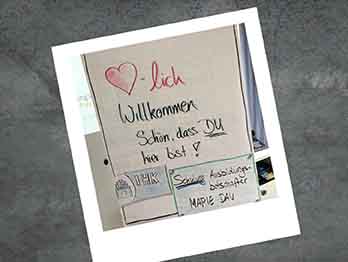 ❤-lich
Willkommen
Schön, dass DU
hier bist!
IHK
Ausbildungs-
botschafter
MARIE DAV